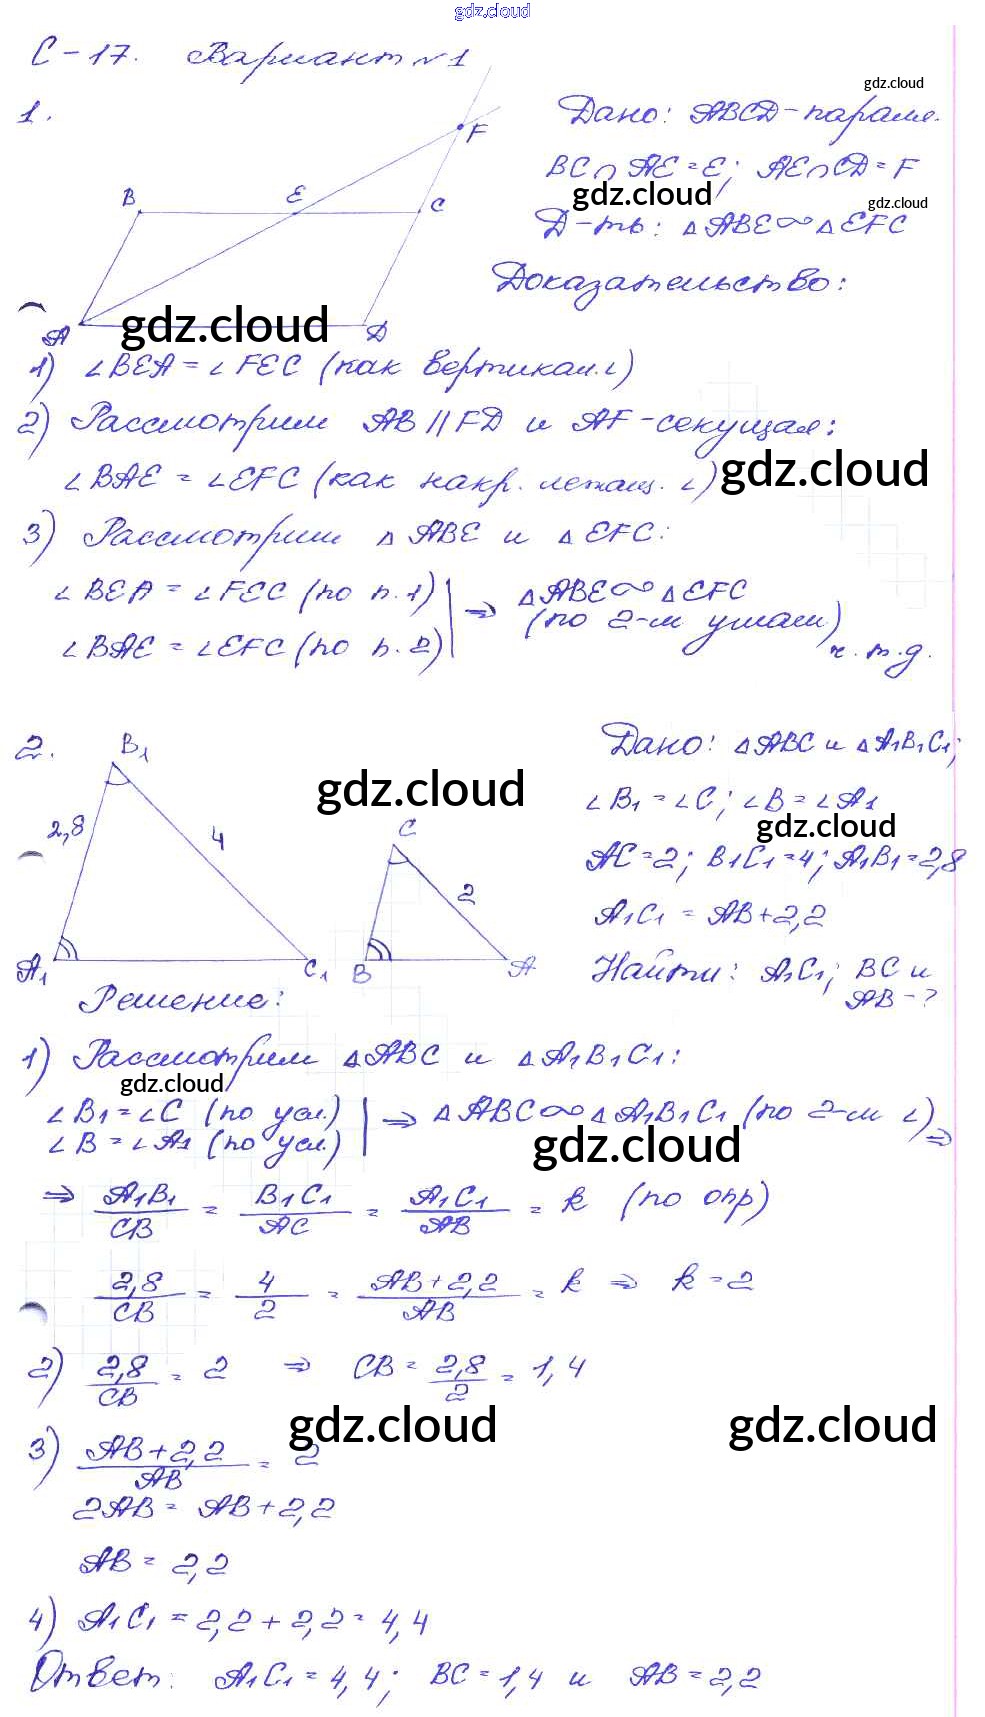 gdz.cloud
С-17. Вариант №1
gdz.cloud
1.
F
B E C
A D
Дано: ABCD-паралл.
BC∩AE=E; AE∩CD=F
gdz.cloud
gdz.cloud
Д-ть: △ABE∾△EFC
Доказательство:
gdz.cloud
1) ∠BEA=∠FEC (как вертикал.∠)
2) Рассмотрим AB||FD и AF-секущая:
gdz.cloud
∠BAE=∠EFC (как накр. лежащ. ∠)
3) Рассмотрим △ABE и △EFC:
∠BEA=∠FEC (по п.1) | ⇒ △ABE∾△EFC
∠BAE=∠EFC (по п.2) | (по 2-м углам)
ч.т.д.
2.
B₁
2,8
4
A₁ C₁
C
2
B A
gdz.cloud
Дано: △ABC и △A₁B₁C₁;
∠B₁=∠C; ∠B=∠A₁
gdz.cloud
AC=2; B₁C₁=4; A₁B₁=2,8
A₁C₁=AB+2,2
Найти: A₁C₁; BC и
AB-?
Решение:
1) Рассмотрим △ABC и △A₁B₁C₁:
gdz.cloud
∠B₁=∠C (по усл.) | ⇒ △ABC∾△A₁B₁C₁ (по 2-м ∠) ⇒
∠B=∠A₁ (по усл.) |
gdz.cloud
⇒ A₁B₁/CB = B₁C₁/AC = A₁C₁/AB = k (по опр)
2,8/CB = 4/2 = AB+2,2/AB = k ⇒ k=2
2) 2,8/CB = 2 ⇒ CB = 2,8/2 = 1,4
gdz.cloud
gdz.cloud
3) AB+2,2/AB = 2
2AB = AB+2,2
AB = 2,2
4) A₁C₁ = 2,2+2,2 = 4,4
Ответ: A₁C₁=4,4; BC=1,4 и AB=2,2